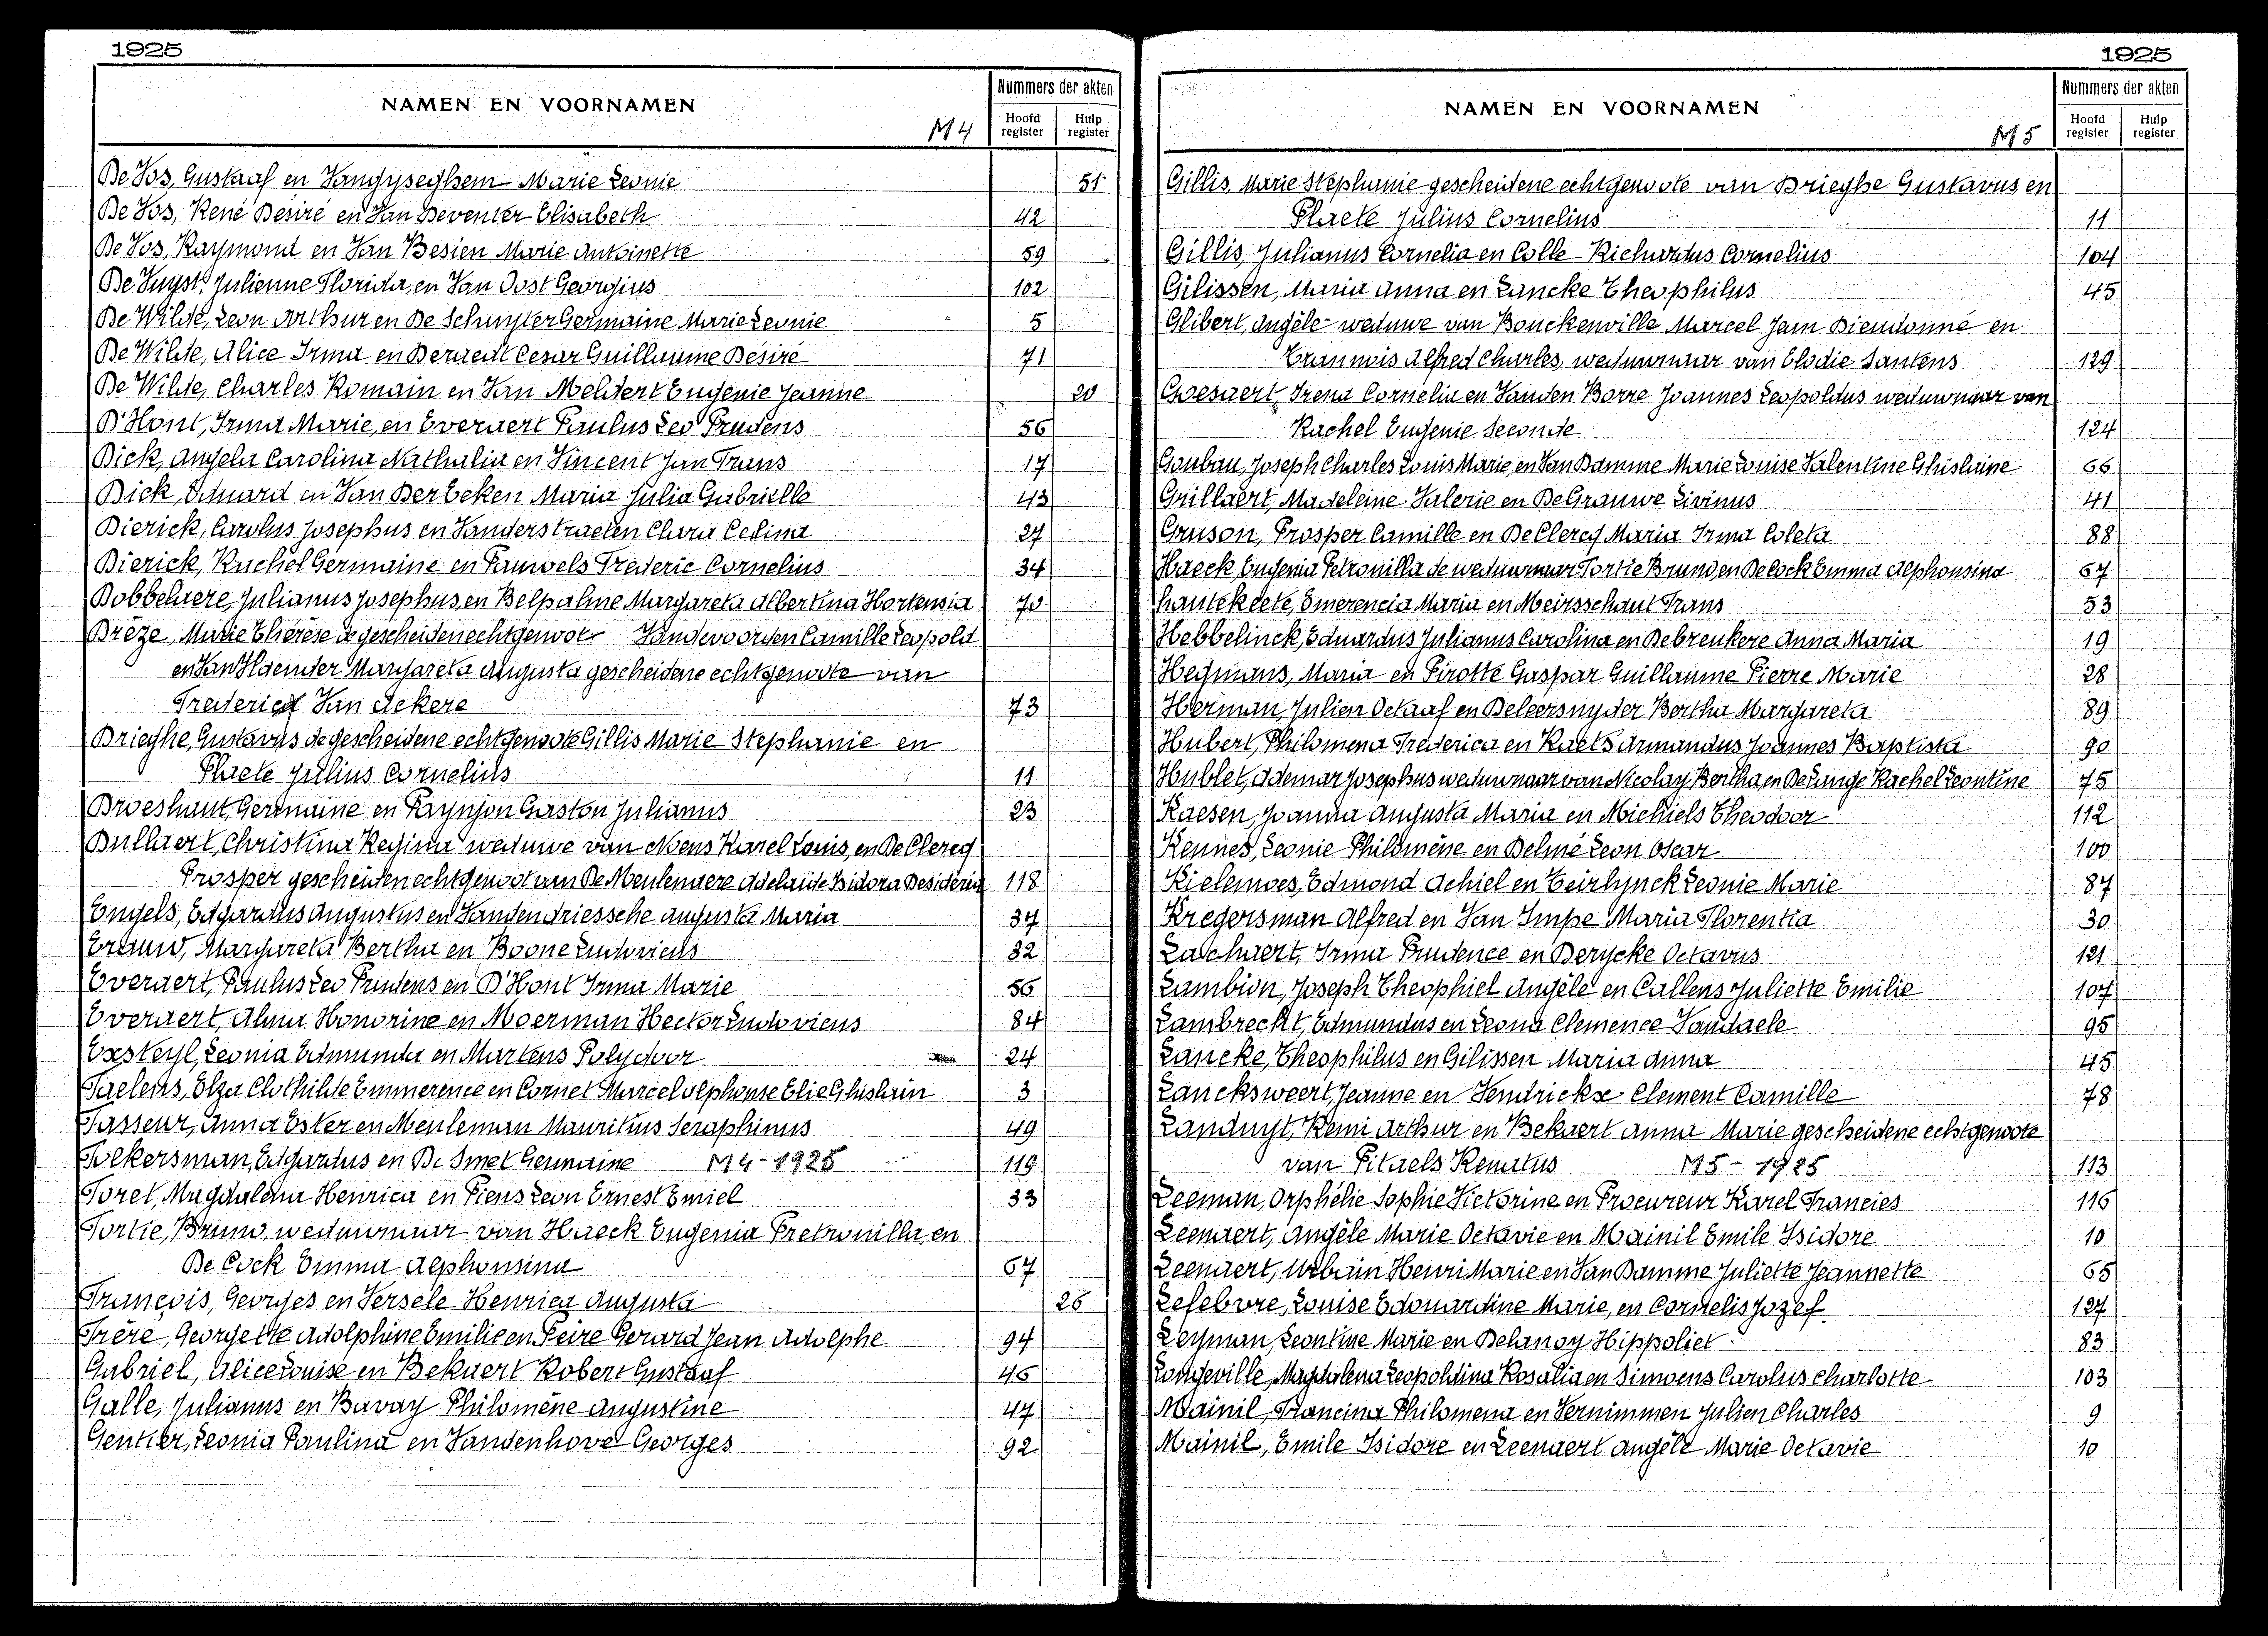 1925
NAMEN EN VOORNAMEN
M4
Nummers der akten
Hoofd register
Hulp register
De Vos, Gustaaf en Vandyseghem Marie Leonie 51
De Vos, René Desiré en Van Deventer Elisabeth 42
De Vos, Raymond en Van Besien Marie Antoinette 59
De Vuyst, Julienne Florida, en Van Oost Georgius 102
De Wilde, Leon Arthur en De Schuyter Germaine Marie Leonie 5
De Wilde, Alice Irma en Deraedt Cesar Guillaume Désiré 71
De Wilde, Charles Romain en Van Meldert Eugenie Jeanne 20
D'Hont, Irma Marie, en Everaert Paulus Leo Prudens 56
Dick, Angela Carolina Nathalia en Vincent Jan Frans 17
Dick, Eduard en Van Der Eeken Maria Julia Gabrielle 43
Dierick, Carolus Josephus en Vanderstraeten Clara Celina 27
Dierick, Rachel Germaine en Pauwels Frederic Cornelius 34
Dobbelaere, Julianus Josephus, en Delpalme Margareta Albertina Hortensia 70
Drèze, Marie Thérèse de gescheiden echtgenoot Vandevoorden Camille Leopold
en Van Haender Margareta Augusta gescheidene echtgenoote van
Frederica Van Ackere 73
Drieghe, Gustavus de gescheidene echtgenoote Gillis Marie Stephanie en
Plaete Julius Cornelius 11
Droeshaut, Germaine en Paynjon Gaston Julianus 23
Dullaert, Christina Regina weduwe van Noens Karel Louis, en De Clercq
Prosper gescheiden echtgenoot van De Meulenaere Adelaide Isidora Desideria 118
Engels, Edgardus Augustus en Vandendriessche Augusta Maria 37
Erauw, Margareta Bertha en Boone Ludovicus 32
Everaert, Paulus Leo Prudens en D'Hont Irma Marie 56
Everaert, Alma Honorine en Moerman Hector Ludovicus 84
Exsteyl, Leonia Edmunda en Martens Polydoor 24
Faelens, Elza Clothilde Emmerence en Cornet Marcel Alphonse Elie Ghislain 3
Fasseur, Anna Ester en Meuleman Mauritius Seraphinus 49
Folkersman, Edgardus en De Smet Germaine M4-1925 119
Foret, Magdalena Henrica en Piens Leon Ernest Emiel 33
Fortie, Bruno, weduwnaar van Haeck Eugenia Pretronilla, en
De Cock Emma Alphonsina 67
François, Georges en Versele Henrica Augusta 26
Frère, Georgette Adolphine Emilie en Peire Gerard Jean Adolphe 94
Gabriel, Alice Louise en Bekaert Robert Gustaaf 46
Galle, Julianus en Bavay Philomène Augustine 47
Gentier, Leonia Paulina en Vandenhove Georges 92
1925
NAMEN EN VOORNAMEN
M5
Nummers der akten
Hoofd register
Hulp register
Gillis, Marie Stephanie gescheidene echtgenoote van Drieghe Gustavus en
Plaete Julius Cornelius 11
Gillis, Julianus Cornelia en Colle Richardus Cornelius 104
Gilissen, Maria Anna en Lancke Theophilus 45
Glibert, Angèle weduwe van Bouckenville Marcel Jam Dieudonné en
Trannois Alfred Charles, weduwnaar van Elodie Santens 129
Goesaert, Irena Cornelia en Vanden Borre Joannes Leopoldus weduwnaar van
Rachel Eugenie Seconde 124
Goubau, Joseph Charles Louis Marie, en Van Damme Marie Louise Valentine Ghislaine 66
Grillaert, Madeleine Valerie en De Grauwe Livinus 41
Gruson, Prosper Camille en De Clercq Maria Irma Coleta 88
Haeck, Eugenia Petronilla de weduwnaar Fortie Bruno en De Cock Emma Alphonsina 67
hautekeete, Emerencia Maria en Meirsschaut Frans 53
Hebbelinck, Eduardus Julianus Carolina en Debreukere Anna Maria 19
Heymans, Maria en Pirotte Gaspar Guillaume Pierre Marie 28
Herman, Julien Octaaf en Deleersnyder Bertha Margareta 89
Hubert, Philomena Frederica en Raets Armandus Joannes Baptista 90
Hublet, Ademar Josephus weduwnaar van Nicolay Bertha, en De Lange Rachel Leontine 75
Kaesen, Joanna Augusta Maria en Michiels Theodoor 112
Kennes, Leonie Philomène en Delmé Leon Oscar 100
Kielemoes, Edmond Achiel en Teirlynck Leonie Marie 87
Kregersman Alfred en Van Impe Maria Florentia 30
Laschaert, Irma Prudence en Derycke Octavus 121
Lambion, Joseph Theophiel Angèle en Callens Juliette Emilie 107
Lambrecht, Edmundus en Leona Clemence Vandaele 95
Lancke, Theophilus en Gilissen Maria Anna 45
Lancksweert, Jeanne en Hendrickx Clement Camille 78
Landuyt, Remi Arthur en Bekaert Anna Marie gescheidene echtgenoote
van Pitaels Renatus M5-1925 113
Leeman, Orphélie Sophie Victorine en Procureur Karel Francies 116
Leenaert, Angèle Marie Octavie en Mainil Emile Isidore 10
Leenaert, Urbain Henri Marie en Van Damme Juliette Jeannette 65
Lefebvre, Louise Edouardine Marie, en Cornelis Jozef 127
Leyman, Leontine Marie en Delanoy Hippoliet 83
Longeville, Magdalena Leopoldina Rosalia en Simoens Carolus Charlotte 103
Mainil, Francina Philomena en Vernimmen Julien Charles 9
Mainil, Emile Isidore en Leenaert Angèle Marie Octavie 10